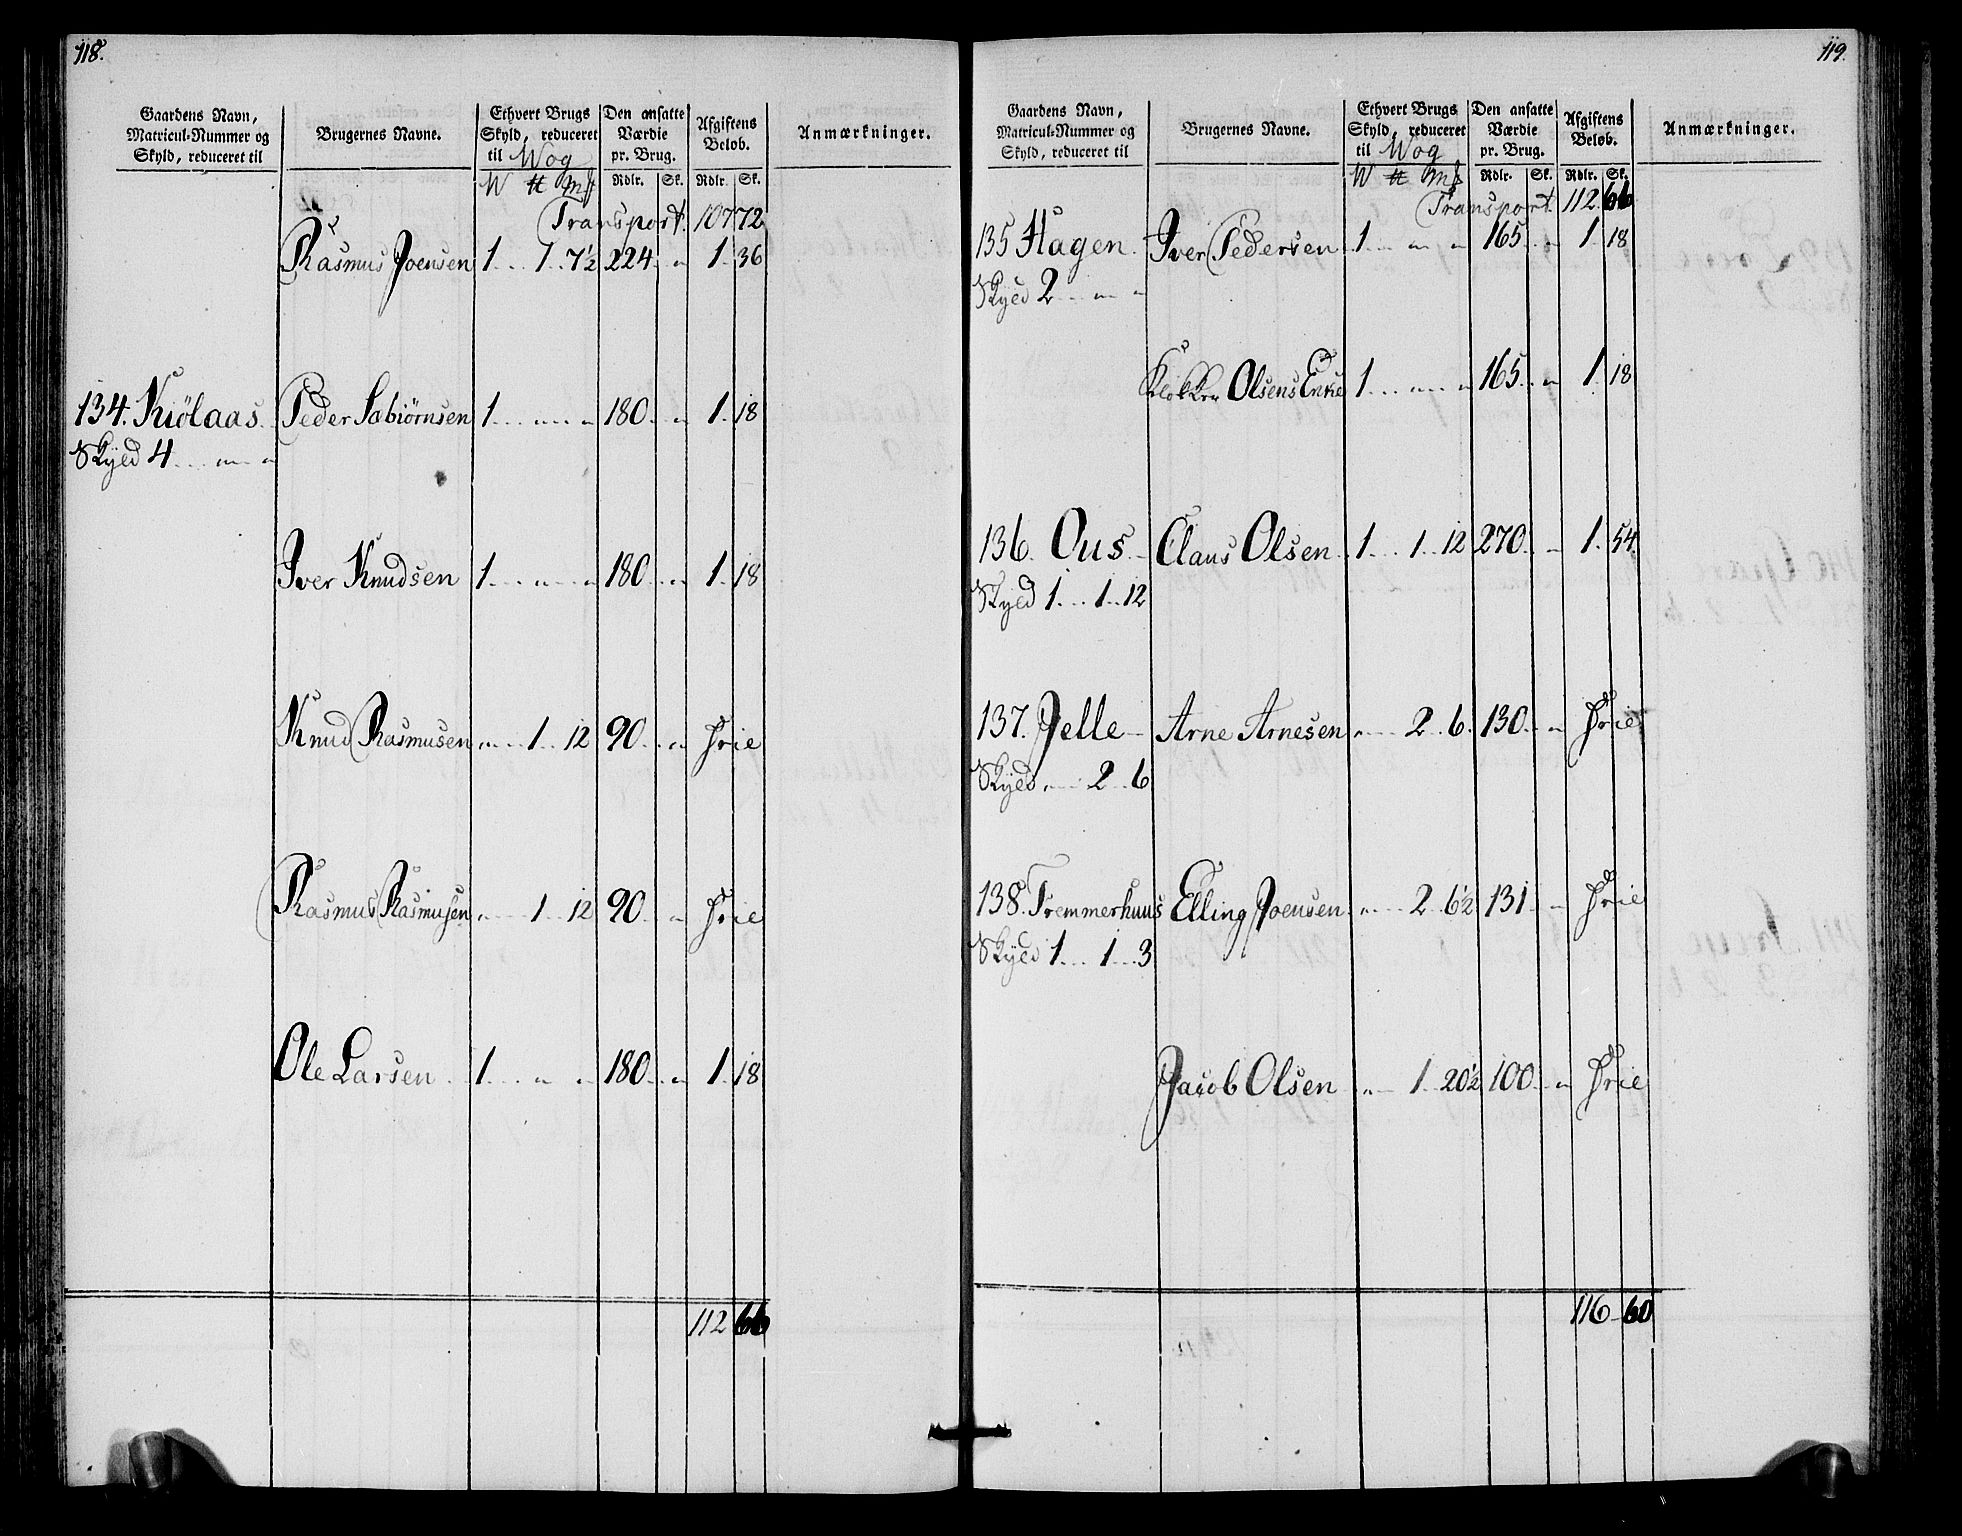 118.
Gaardens Navn, Matricul-Nummer og Skyld, reduceret til
Brugernes Navne.
Ethvert Brugs Skyld, reduceret til Wog
Den ansatte Værdie pr. Brug.
Afgiftens Beløb.
Anmærkninger.
W ℔ mk Rdlr. Sk. Rdlr. Sk.
Transport. 107 72
Rasmus Joensen 1 .. 1 .. 7½ 224 .. „ 1. 36
134. Kiölaas Peder Sæbiörnsen 1 .. „ .. „ 180 .. „ 1. 18
Skyld 4 .. „ .. „
Iver Knudsen 1 .. „ .. „ 180 .. „ 1. 18
Knud Rasmusen „ .. 1 .. 12 90 .. „ Frie
Rasmus Rasmusen „ .. 1 .. 12 90 .. „ Frie
Ole Larsen 1 .. „ .. „ 180 .. „ 1. 18
112 66
119.
Gaardens Navn, Matricul-Nummer og Skyld, reduceret til
Brugernes Navne.
Ethvert Brugs Skyld, reduceret til Wog
Den ansatte Værdie pr. Brug.
Afgiftens Beløb.
Anmærkninger.
W ℔ mk Rdlr. Sk. Rdlr. Sk.
Transport. 112. 66
135 Hagen Iver Pedersen 1 .. „ .. „ 165 .. „ 1. 18
Skyld 2 .. „ .. „
Klokker Olsens Enke 1 .. „ .. „ 165 .. „ 1. 18
136. Ous Claus Olsen 1 .. 1 .. 12 270 .. „ 1. 54
Skyld 1 .. 1 .. 12
137. Jelle Arne Arnesen „ .. 2 .. 6 130 .. „ Frie
Skyld „ .. 2 .. 6
138. Tremmerhuus Elling Joensen „ .. 2 .. 6½ 131 .. „ Frie
Skyld 1 .. 1 .. 3
Jacob Olsen „ .. 1 .. 20½ 100 .. „ Frie
116 60